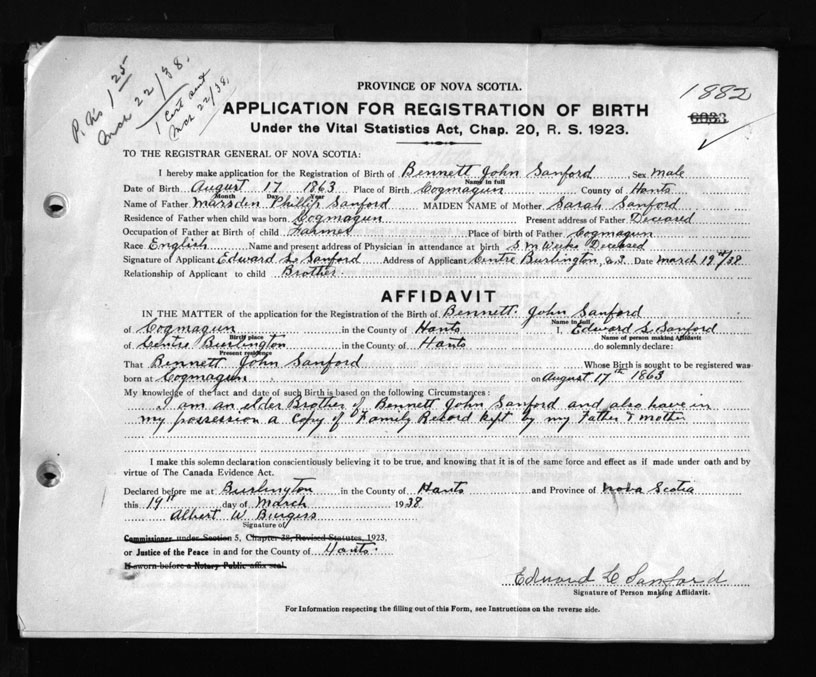 P. No 1 25
Mar 22/38.
1 Cert sent
Mar 22/38.
1882
6033
PROVINCE OF NOVA SCOTIA.
APPLICATION FOR REGISTRATION OF BIRTH
Under the Vital Statistics Act, Chap. 20, R. S. 1923.
TO THE REGISTRAR GENERAL OF NOVA SCOTIA:
I hereby make application for the Registration of Birth of Bennett John Sanford Sex Male
Name in full
Date of Birth August 17 1863 Place of Birth Cogmagun County of Hants
Month Day Year
Name of Father Marsden Phillip Sanford MAIDEN NAME of Mother Sarah Sanford
Residence of Father when child was born Cogmagun Present address of Father Deceased
Occupation of Father at Birth of child Farmer Place of birth of Father Cogmagun
Race English Name and present address of Physician in attendance at birth S. M Weeks Deceased
Signature of Applicant Edward L Sanford Address of Applicant Centre Burlington, N.S. Date March 19th/38
Relationship of Applicant to child Brother.
AFFIDAVIT
IN THE MATTER of the application for the Registration of the Birth of Bennett John Sanford
Name in full
of Cogmagun in the County of Hants I, Edward L Sanford
Birth place Name of person making Affidavit
of Centre Burlington in the County of Hants do solemnly declare:
Present residence
That Bennett John Sanford Whose Birth is sought to be registered was
born at Cogmagun on August 17th 1863
My knowledge of the fact and date of such Birth is based on the following Circumstances:
I am an elder Brother of Bennett John Sanford and also have in
my possession a copy of Family Record kept by my Father & mother
I make this solemn declaration conscientiously believing it to be true, and knowing that it is of the same force and effect as if made under oath and by
virtue of The Canada Evidence Act.
Declared before me at Burlington in the County of Hants and Province of Nova Scotia
this 19th day of March 1938
Albert W Burgess
Signature of
Commissioner under Section 5, Chapter 38, Revised Statutes, 1923,
or Justice of the Peace in and for the County of Hants.
If sworn before a Notary Public affix seal.
Edward L Sanford
Signature of Person making Affidavit.
For Information respecting the filling out of this Form, see Instructions on the reverse side.